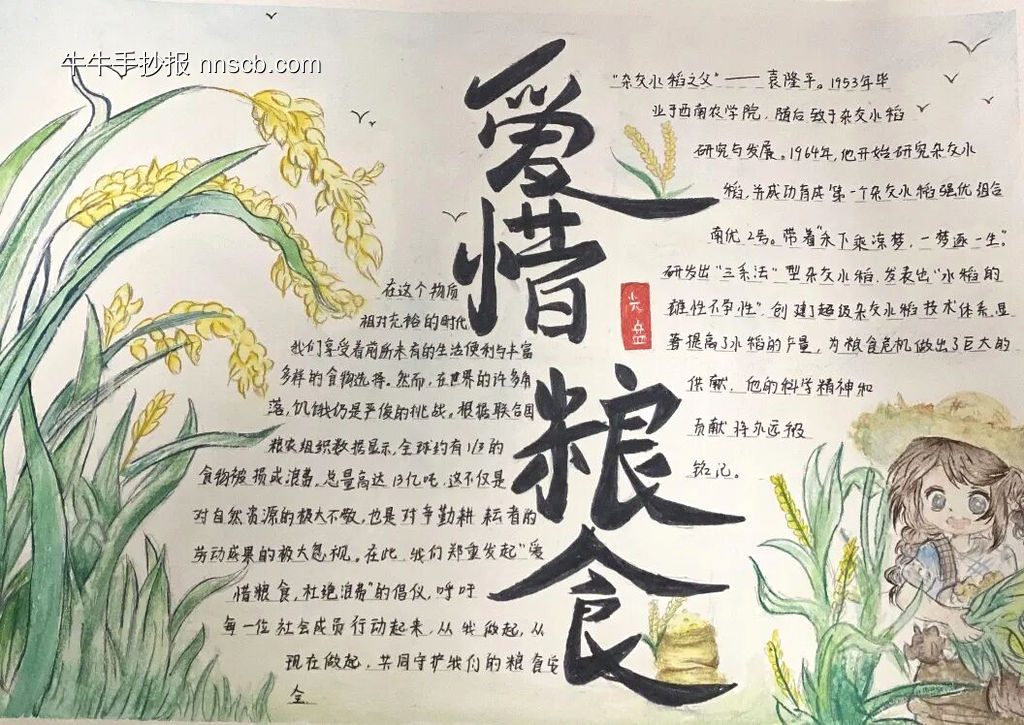 牛牛手抄报 nnscb.com
爱惜粮食
光盘
在这个物质
相对充裕的时代
我们享受着前所未有的生活便利与丰富
多样的食物选择。然而,在世界的许多角
落,饥饿仍是严峻的挑战。根据联合国
粮农组织数据显示,全球约有1/3的
食物被损或浪费。总量高达13亿吨,这不仅是
对自然资源的极大不敬,也是对辛勤耕耘者的
劳动成果的极大忽视。在此,我们郑重发起"爱
惜粮食,杜绝浪费"的倡仪,呼吁
每一位社会成员行动起来,从我做起,从
现在做起,共同守护我们的粮食安
全
"杂交水稻之父"——袁隆平。1953年毕
业于西南农学院,随后致于杂交水稻
研究与发展。1964年,他开始研究杂交水
稻,并成功育成第一个杂交水稻强优组合
南优2号。带着"禾下乘凉梦,一梦逐一生"。
研发出"三系法"型杂交水稻.发表出"水稻的
雄性不孕性".创建超级杂交水稻技术体系,显
著提高了水稻的产量,为粮食危机做出了巨大的
供献,他的科学精神和
贡献将永远被
铭记。